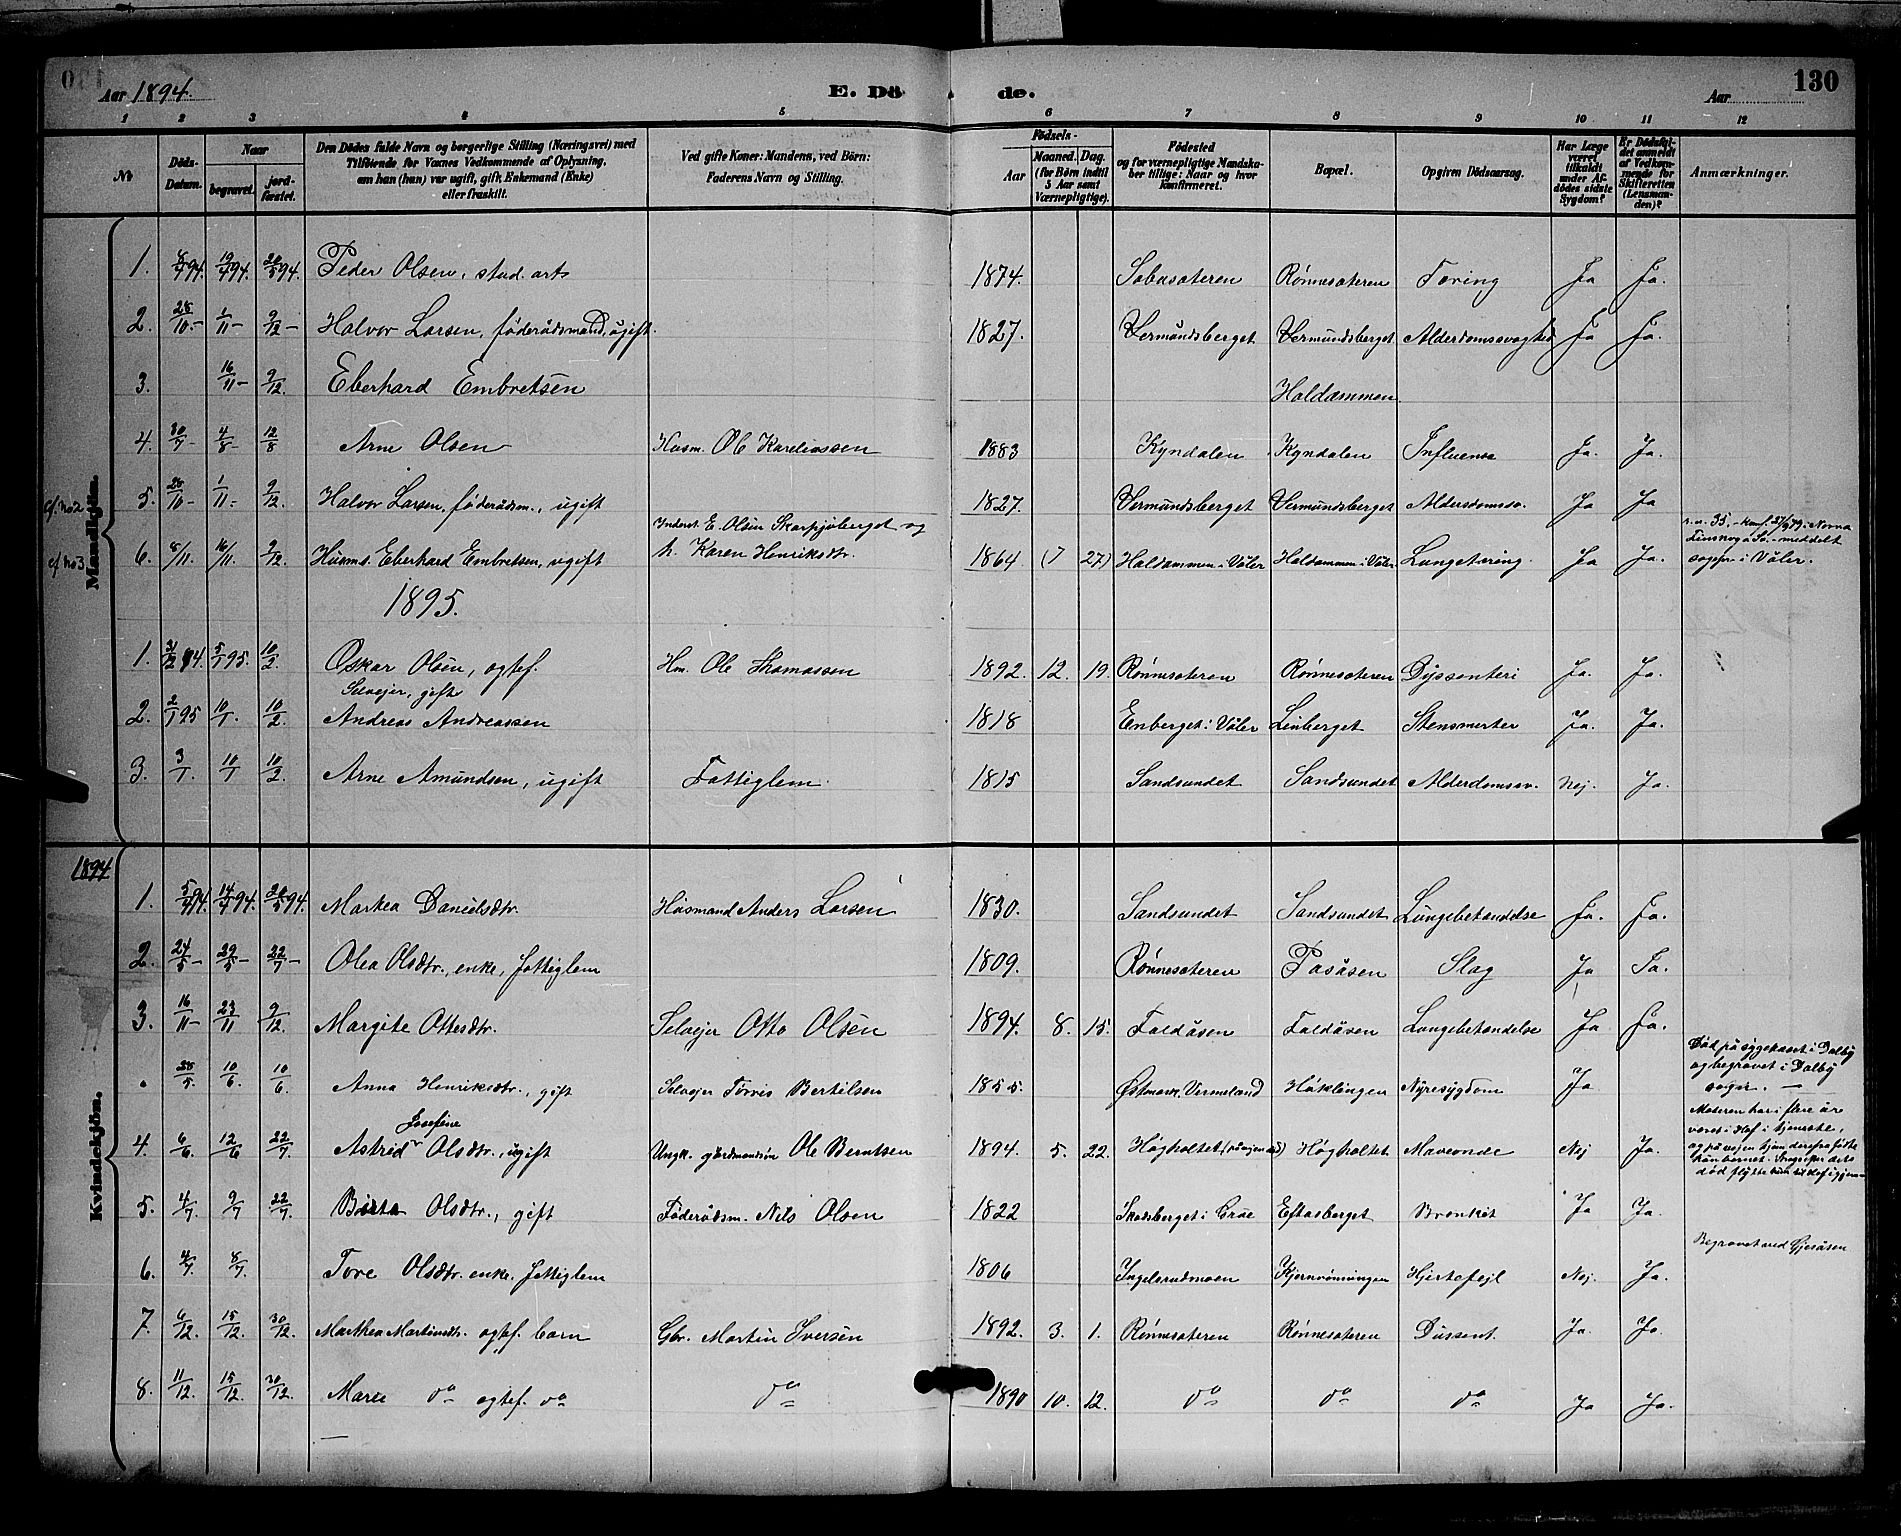 Aar 1894. E. Dö de. Aar 130
1 2 3 4 5 6 7 8 9 10 11 12
No
Döds-Datum.
Naar
begravet.
jordfæstet.
Den Dödes fulde Navn og borgerlige Stilling (Næringsvei) med
Tilföiende for Voxnes Vedkommende af Oplysning,
om han (hun) var ugift, gift, Enkemand (Enke)
eller fraskilt.
Ved gifte Koner: Mandens, ved Börn:
Faderens Navn og Stilling.
Födsels-
Aar
Maaned. Dag.
(for Börn indtil
5 Aar samt
Værnepligtige).
Födested
og for værnepligtige Mandskaber tillige: Naar og hvor
konfirmeret.
Bopæl.
Opgiven Dödsaarsag.
Har Læge
været
tilkaldt
under Afdödes sidste
Sygdom?
Er Dödsfaldet anmeldt
af Vedkommende for
Skifteretten
(Lensmanden)?
Anmærkninger.
Mandkjön.
1. 8/4 94. 19/4 94. 20/5 94. Peder Olsen, stud. arts 1874. Sobasæteren Rønnesæteren Tæring Ja Ja.
2. 28/10 - 1/11 - 9/12 - Halvor Larsen, føderådsmand, ugift. 1827. Vermundsberget Vermundsberget Alderdomssvaghed Ja Ja.
3. 16/11 - 9/12. Eberhard Embretsen Haldammen
4. 30/7 - 4/8 - 12/8 Arne Olsen Husm. Ole Kareliussen 1883 Kyndalen Kyndalen Influensa Ja. Ja.
cf. no 2 5. 28/10 - 1/11 - 9/12. Halvor Larsen, føderådsm., ugift 1827. Vermundsberget Vermundsberget Aldersdomssv. Ja Ja
cf. no 3 6. 8/11. 16/11. 9/12. Husms. Eberhard Embretsen, ugift Inderst E. Olsen Skarpjøberget og
h. Karen Henriksdtr. 1864 (7 27) Haldammen i Våler Haldammen i Våler Lungetæring. Ja Ja. r. n. 35. - konf. 27/9 79. Norna
meddelt
sogpr. i Våler.
1895.
1. 31/12 94. 5/1 95. 10/2. Oskar Olsen, ogtef. Hm. Ole Thomassen 1892. 12. 19. Rønnesæteren Rønnesæteren Dyssenteri Ja. Ja.
Selvejer, gift
2. 2/1 95 10/1. 10/2 Andreas Andreassen 1818 Enberget i Våler Linberget Stensmerter Ja. Ja.
3. 3/1. 10/1 10/2 Arne Amundsen, ugift Fattiglem. 1815 Sandsundet Sandsundet Alderdomssv. Nej. Ja.
1894
Kvindekjön.
1. 5/4 94. 14/4 94. 20/5 94. Martea Danielsdtr. Husmand Anders Larsen 1830. Sandsundet Sandsundet Lungebetændelse Ja. Ja.
2. 24/5 - 29/5 - 22/7 - Olea Olsdtr., enke, fattiglem 1809. Rønnesæteren Pasåsen Slag Ja Ja.
3. 16/11 - 23/11 9/12. Margite Ottesdtr. Selvejer Otto Olsen 1894. 8. 15. Faldåsen Faldåsen Lungebetændelse Ja Ja.
. 28/5. 10/6. 10/6. Anna Henriksdtr., gift Selvejer Torris Bertilsen 1855. Østmark, Vermeland Håklingen Nyresygdom Ja Død på sygehuset i Dalby
og begravet i Dalby
sogn. —
Josefine
4. 6/6. 12/6 22/7. Astrid Olsdtr., ugift Ungk. gårdmandsøn Ole Berntsen 1894. 5. 22. Høgholtet Høgholtet Maveonde Nej Ja. Moderen har i flere år
været i Hof i tjeneste,
og på vejen hjem derfra fødte
hun barnet. dets
død flytte hun til Hof igjen
5. 4/7. 9/7 22/7. Birte Olsdtr., gift Føderådsm. Nils Olsen 1822 Skadsberget i Grue Eftasberget Bronkit Ja Ja.
6. 4/7. 8/7. Tore Olsdtr. enke. fattiglem 1806 Ingelsrudmoen Kjernmoningen Hjertefejl Nej. Ja. Begravet ved Gjesåsen
7. 6/12. 15/12. 30/12. Marthea Martinsdtr. ogtef. barn Gbr. Martin Iversen 1892. 3. 1. Rønnesæteren Rønnesæteren Dissent. Ja. Ja.
8. 11/12. 15/12. 30/12. Marie do ogtef. do do 1890 10. 12. do do do Ja Ja.